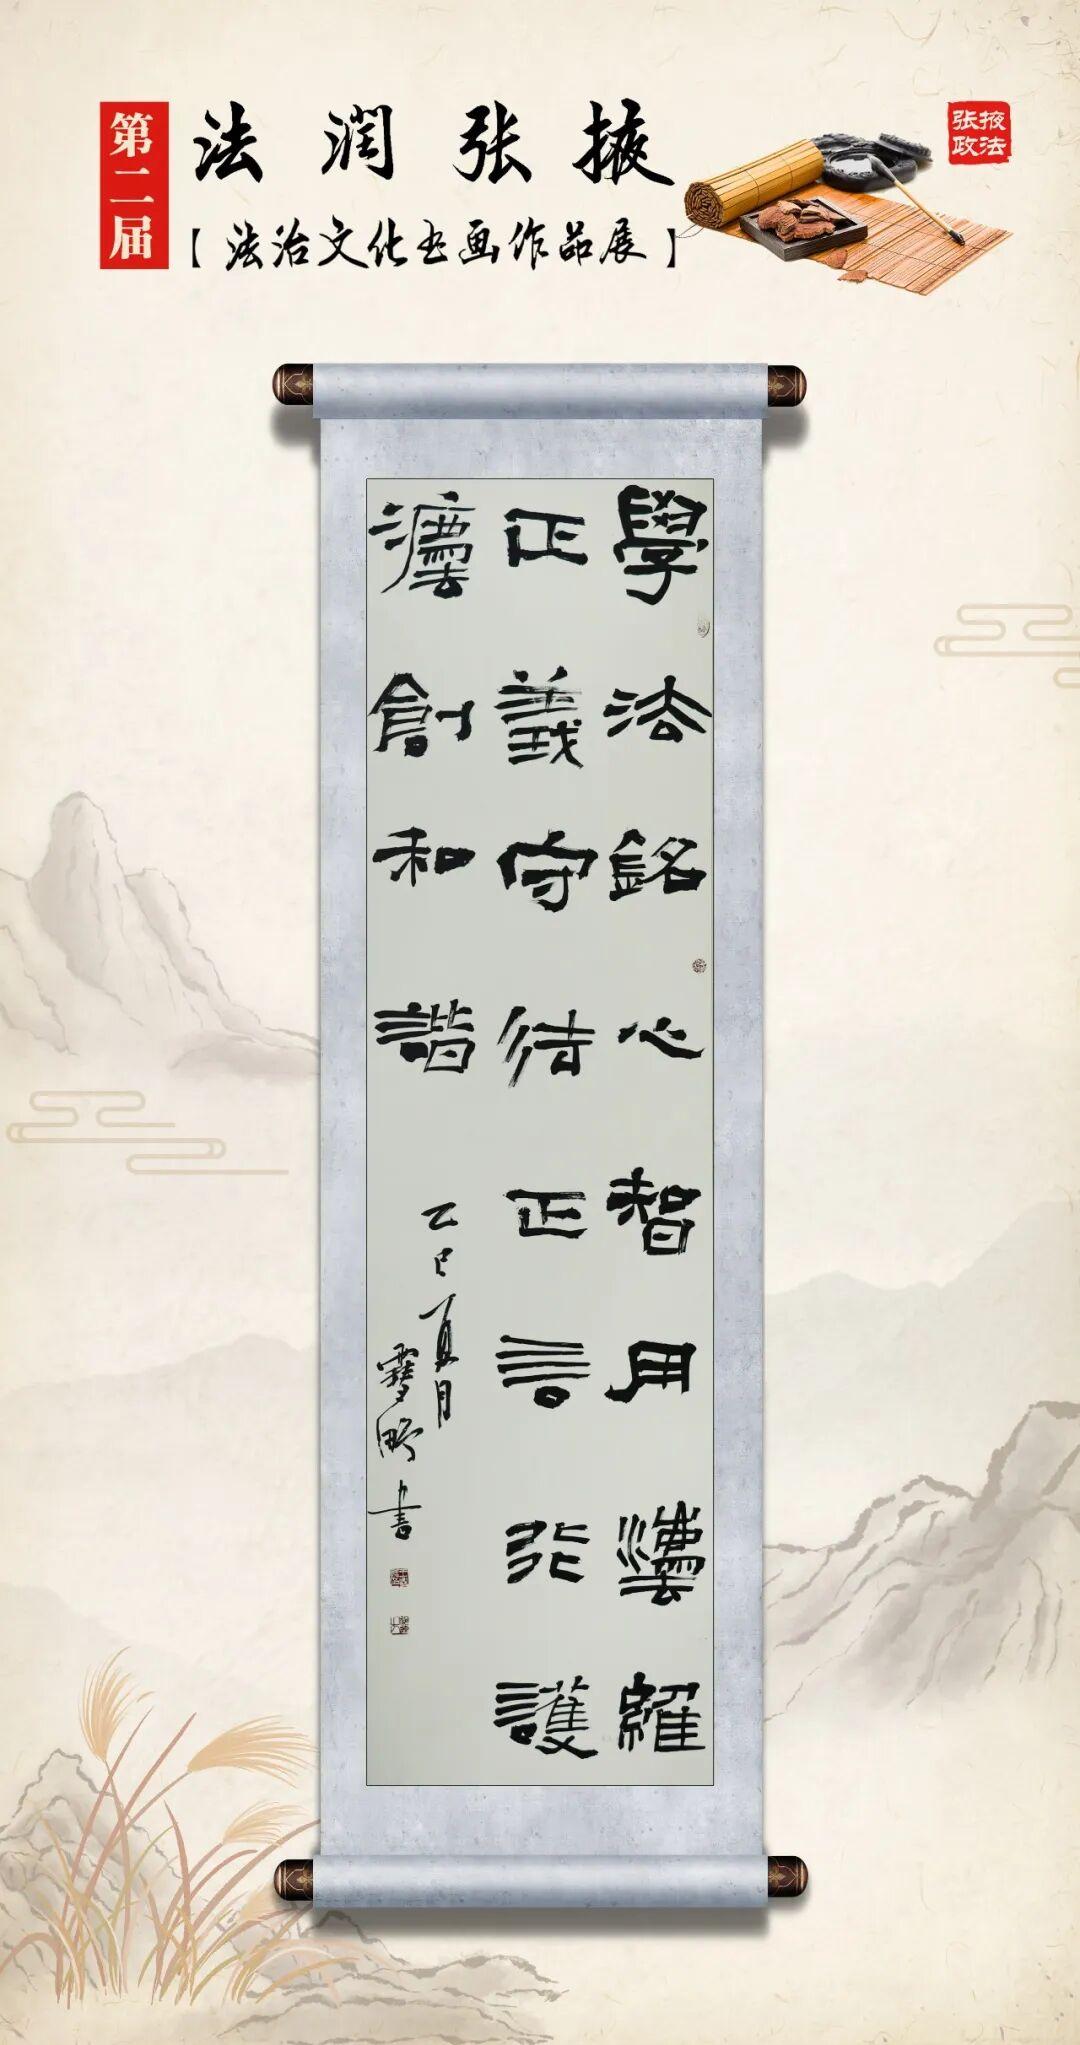 第二届
法润张掖
【法治文化书画作品展】
张掖
政法
學法銘心智用灋維
正義守待正言行護
灋創和諧
乙巳夏月
雪野书